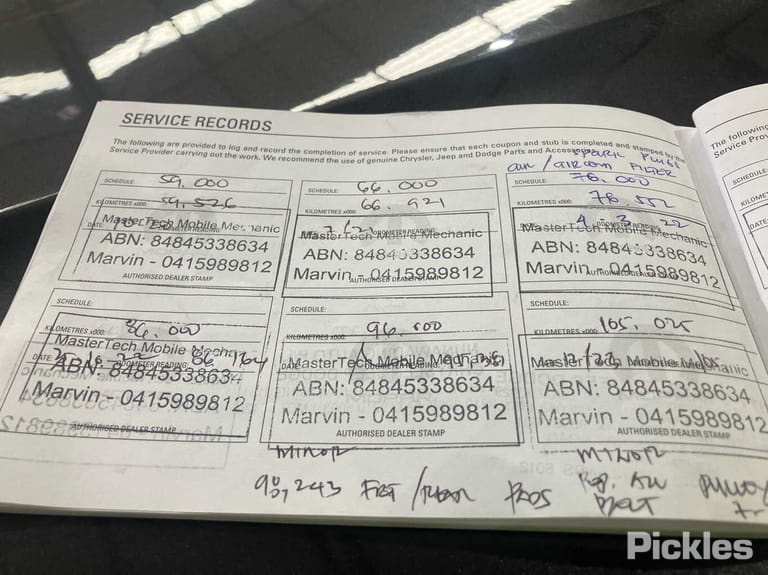 SERVICE RECORDS
The following are provided to log and record the completion of service. Please ensure that each coupon and stub is completed and stamped by the
Service Provider carrying out the work. We recommend the use of genuine Chrysler, Jeep and Dodge Parts and Accessories
SPARK PLUGS
AIR / AIRCON FILTER
SCHEDULE: 59,000
KILOMETRES x000: 59,526
DATE:
MasterTech Mobile Mechanic
ABN: 84845338634
Marvin - 0415989812
AUTHORISED DEALER STAMP
SCHEDULE: 66,000
KILOMETRES x000: 66,921
MasterTech Mobile Mechanic
ABN: 84845338634
Marvin - 0415989812
AUTHORISED DEALER STAMP
SCHEDULE: 76,000
KILOMETRES x000: 76,552
4 3 22
MasterTech Mobile Mechanic
ABN: 84845338634
Marvin - 0415989812
SCHEDULE:
KILOMETRES x000: 86,000
DATE: ODOMETER READING: 86,164
MasterTech Mobile Mechanic
ABN: 84845338634
Marvin - 0415989812
AUTHORISED DEALER STAMP
SCHEDULE:
KILOMETRES x000: 96,000
DATE:
MasterTech Mobile Mechanic
ABN: 84845338634
Marvin - 0415989812
AUTHORISED DEALER STAMP
MINOR
SCHEDULE:
KILOMETRES x000: 105,025
MasterTech Mobile Mechanic
ABN: 84845338634
Marvin - 0415989812
AUTHORISED DEALER STAMP
MINOR
90,243 FRT / REAR PADS
BELT
The following
Service Prov
SCHEDULE
KILOMET
DATE:
Pickles